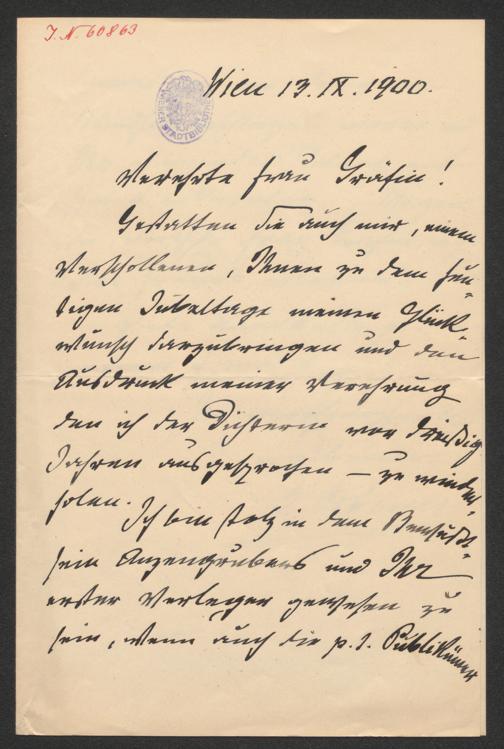 J. N. 60863
WIENER STADTBIBLIOTHEK
Wien 13. IX. 1900.
Verehrte Frau Gräfin!
Gestatten Sie auch mir, einem
Verschollenen, Ihnen zu dem heu-
tigen Jubeltage meinen Glück-
wunsch darzubringen und den
Ausdruck meiner Verehrung
den ich der Dichterin vor dreißig
Jahren ausgesprochen – zu wieder-
holen.
Ich bin stolz in dem Bewußt-
sein Anzengrubers und Ihr
erster Verleger gewesen zu
sein, wenn auch die p. t. Publikümer